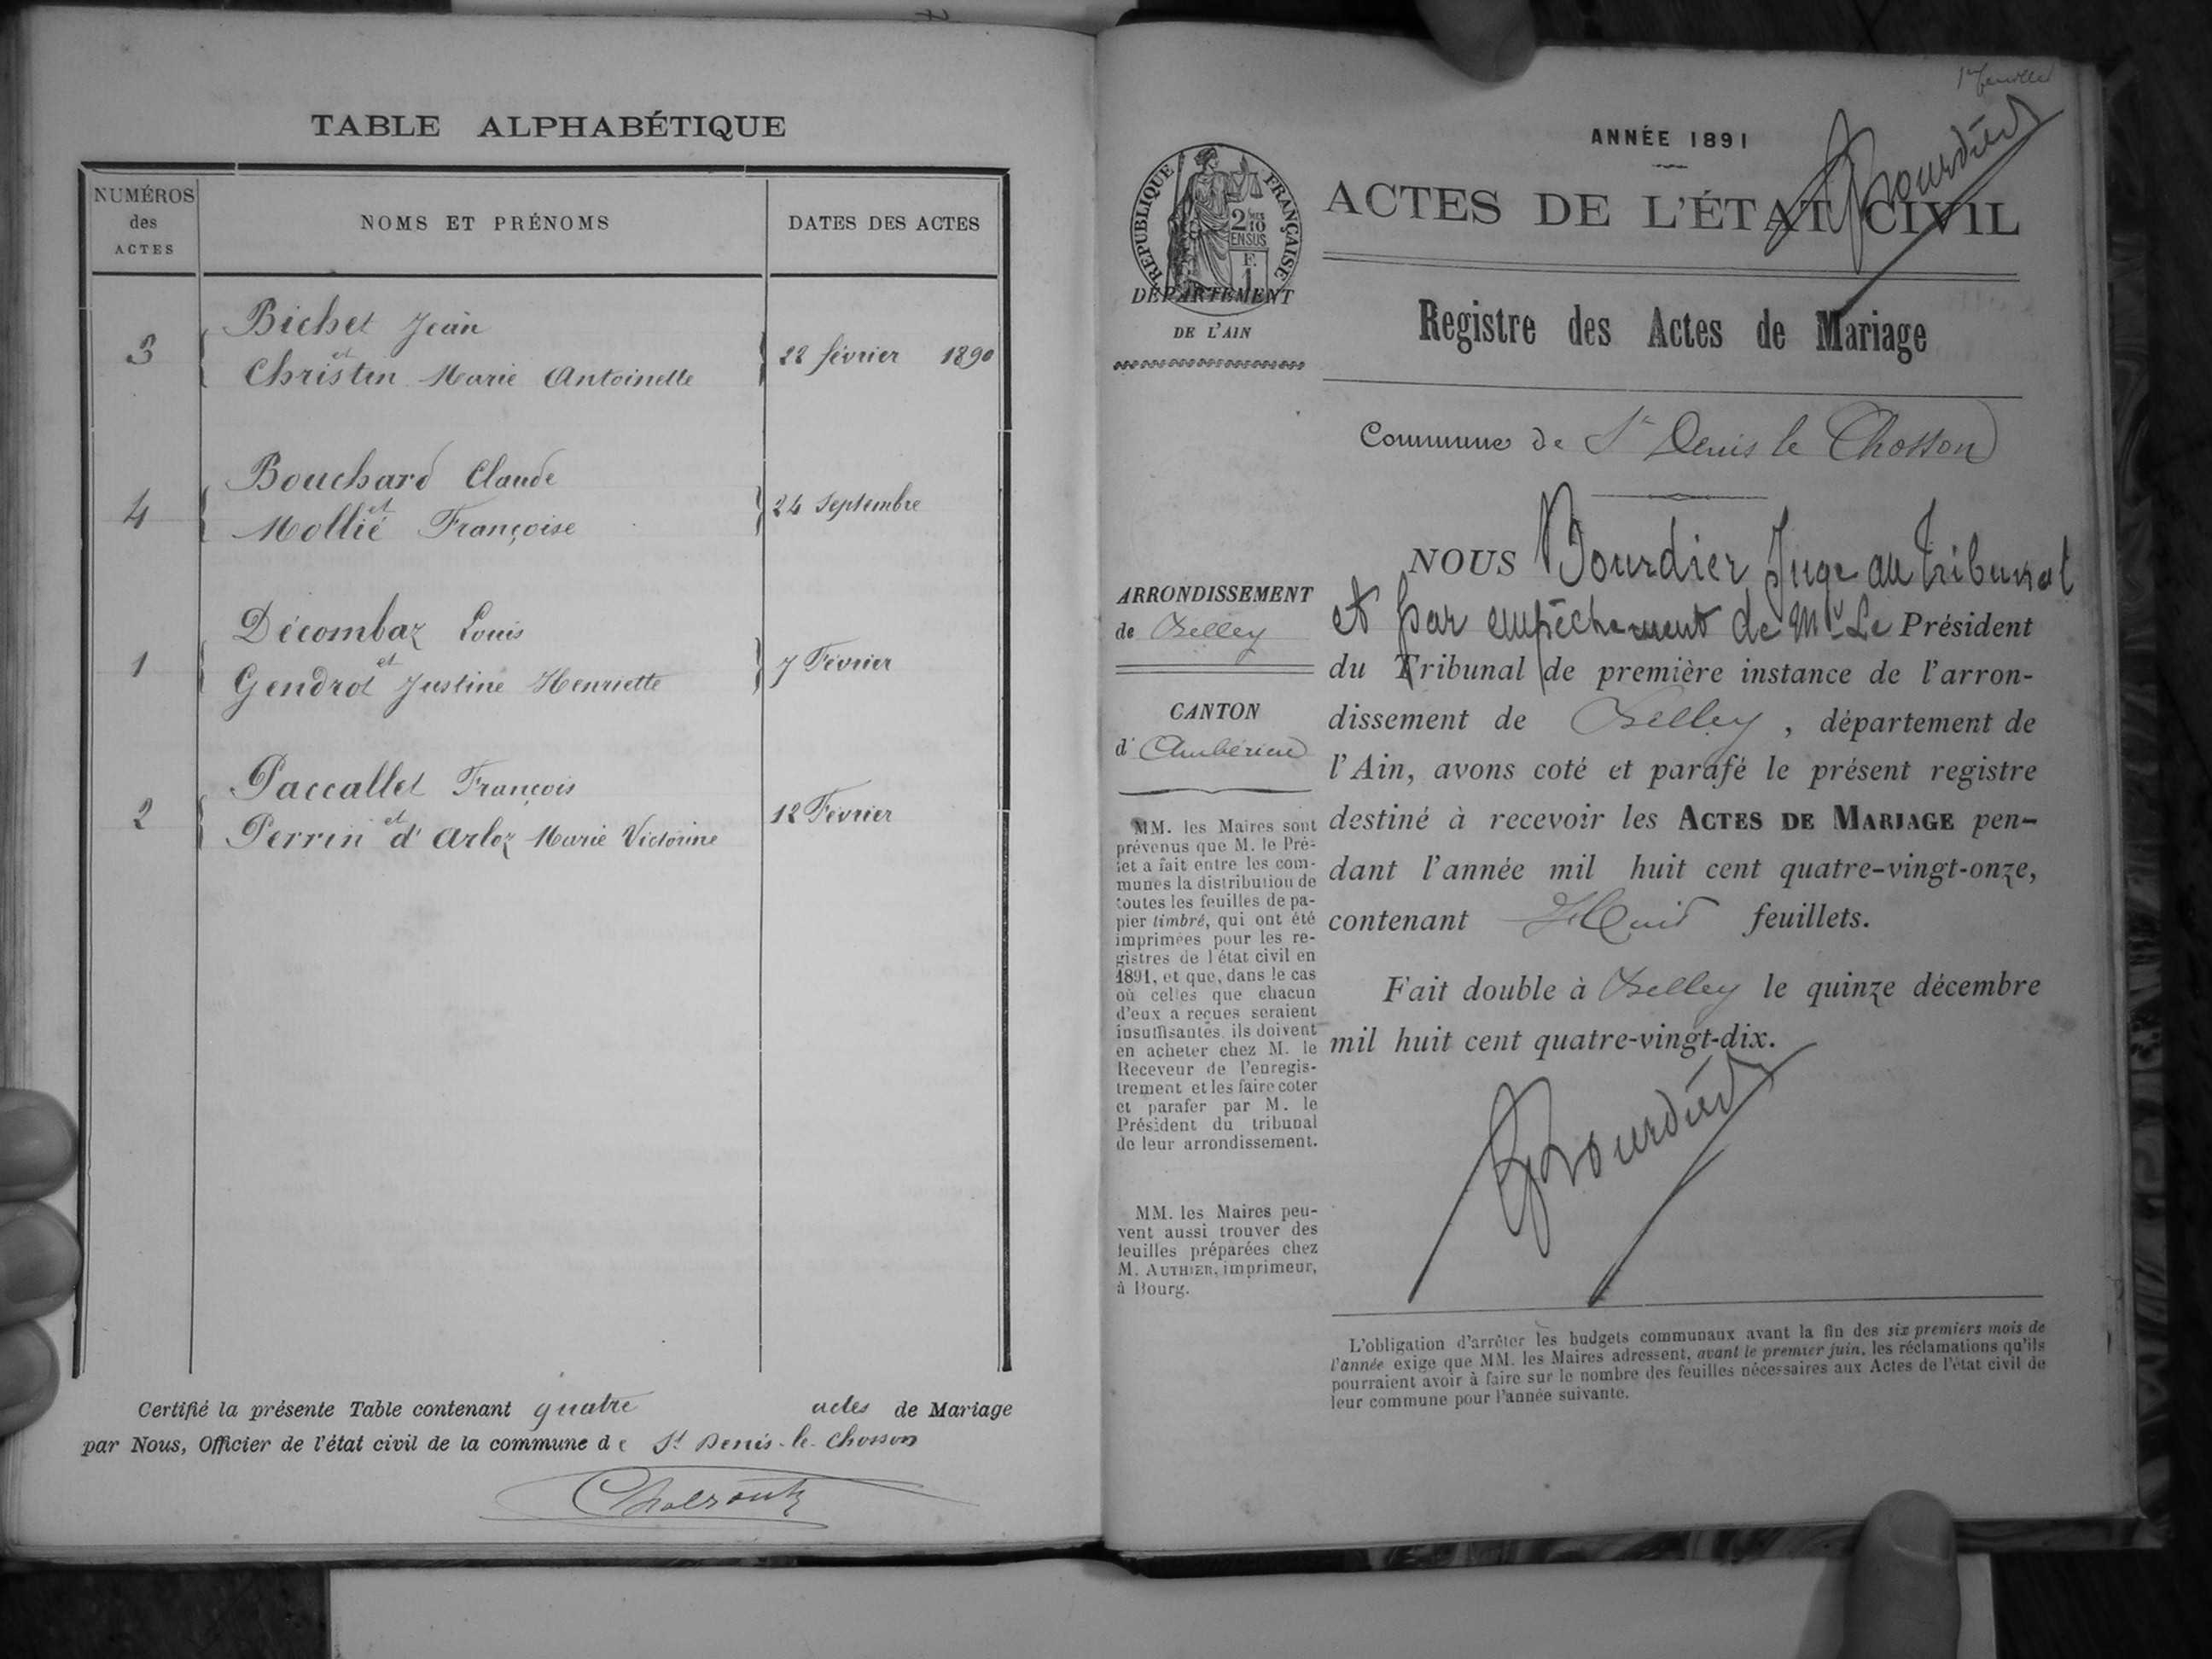 TABLE ALPHABÉTIQUE
NUMÉROS
des
ACTES
NOMS ET PRÉNOMS
DATES DES ACTES
3
Bichet Jean
et
Christin Marie Antoinette
22 février 1890
4
Bouchard Claude
et
Mollié Françoise
24 Septembre
1
Décombaz Louis
et
Gendrot Justine Henriette
7 Février
2
Paccallet François
et
Perrin d'Arloz Marie Victorine
12 Février
Certifié la présente Table contenant quatre actes de Mariage
par Nous, Officier de l'état civil de la commune de St Denis-le-Chosson
1er feuillet
ANNÉE 1891
Bourdier
RÉPUBLIQUE FRANÇAISE
2/10
EN SUS
F.
1
ACTES DE L'ÉTAT CIVIL
DÉPARTEMENT
DE L'AIN
Registre des Actes de Mariage
Commune de St Denis le Chosson
ARRONDISSEMENT
de Belley
CANTON
d'Ambérieu
MM. les Maires sont
prévenus que M. le Pré-
fet a fait entre les com-
munes la distribution de
toutes les feuilles de pa-
pier timbré, qui ont été
imprimées pour les re-
gistres de l'état civil en
1891, et que, dans le cas
où celles que chacun
d'eux a reçues seraient
insuffisantes, ils doivent
en acheter chez M. le
Receveur de l'enregis-
trement et les faire coter
et parafer par M. le
Président du tribunal
de leur arrondissement.
MM. les Maires peu-
vent aussi trouver des
feuilles préparées chez
M. AUTHIER, imprimeur,
à Bourg.
NOUS Bourdier Juge au Tribunal
et par empêchement de Mr Le Président
du Tribunal de première instance de l'arron-
dissement de Belley, département de
l'Ain, avons coté et parafé le présent registre
destiné à recevoir les ACTES DE MARIAGE pen-
dant l'année mil huit cent quatre-vingt-onze,
contenant Huit feuillets.
Fait double à Belley le quinze décembre
mil huit cent quatre-vingt-dix.
Bourdier
L'obligation d'arrêter les budgets communaux avant la fin des six premiers mois de
l'année exige que MM. les Maires adressent, avant le premier juin, les réclamations qu'ils
pourraient avoir à faire sur le nombre des feuilles nécessaires aux Actes de l'état civil de
leur commune pour l'année suivante.